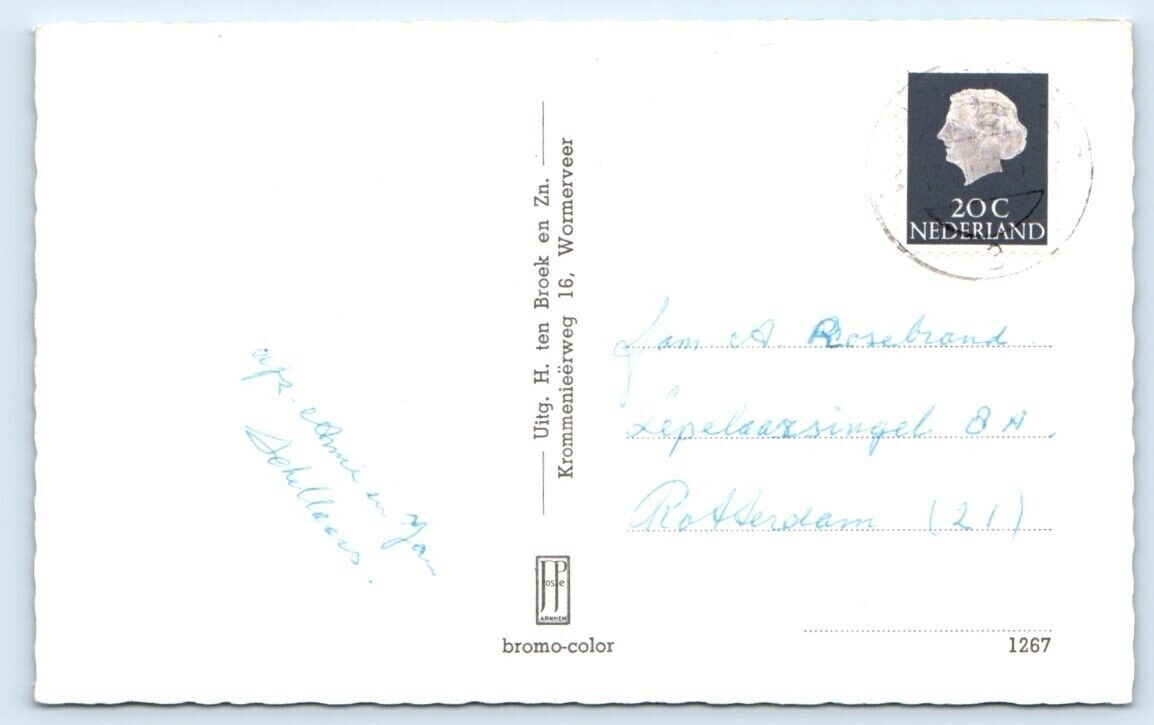 afz. Annie en Jan
Schellaars.
Uitg. H. ten Broek en Zn.
Krommenieërweg 16, Wormerveer
JP
oste
ARNHEM
bromo-color
20 C
NEDERLAND
fam A. Rosebrand.
Lepelaarsingel 8A
Rotterdam (21)
1267